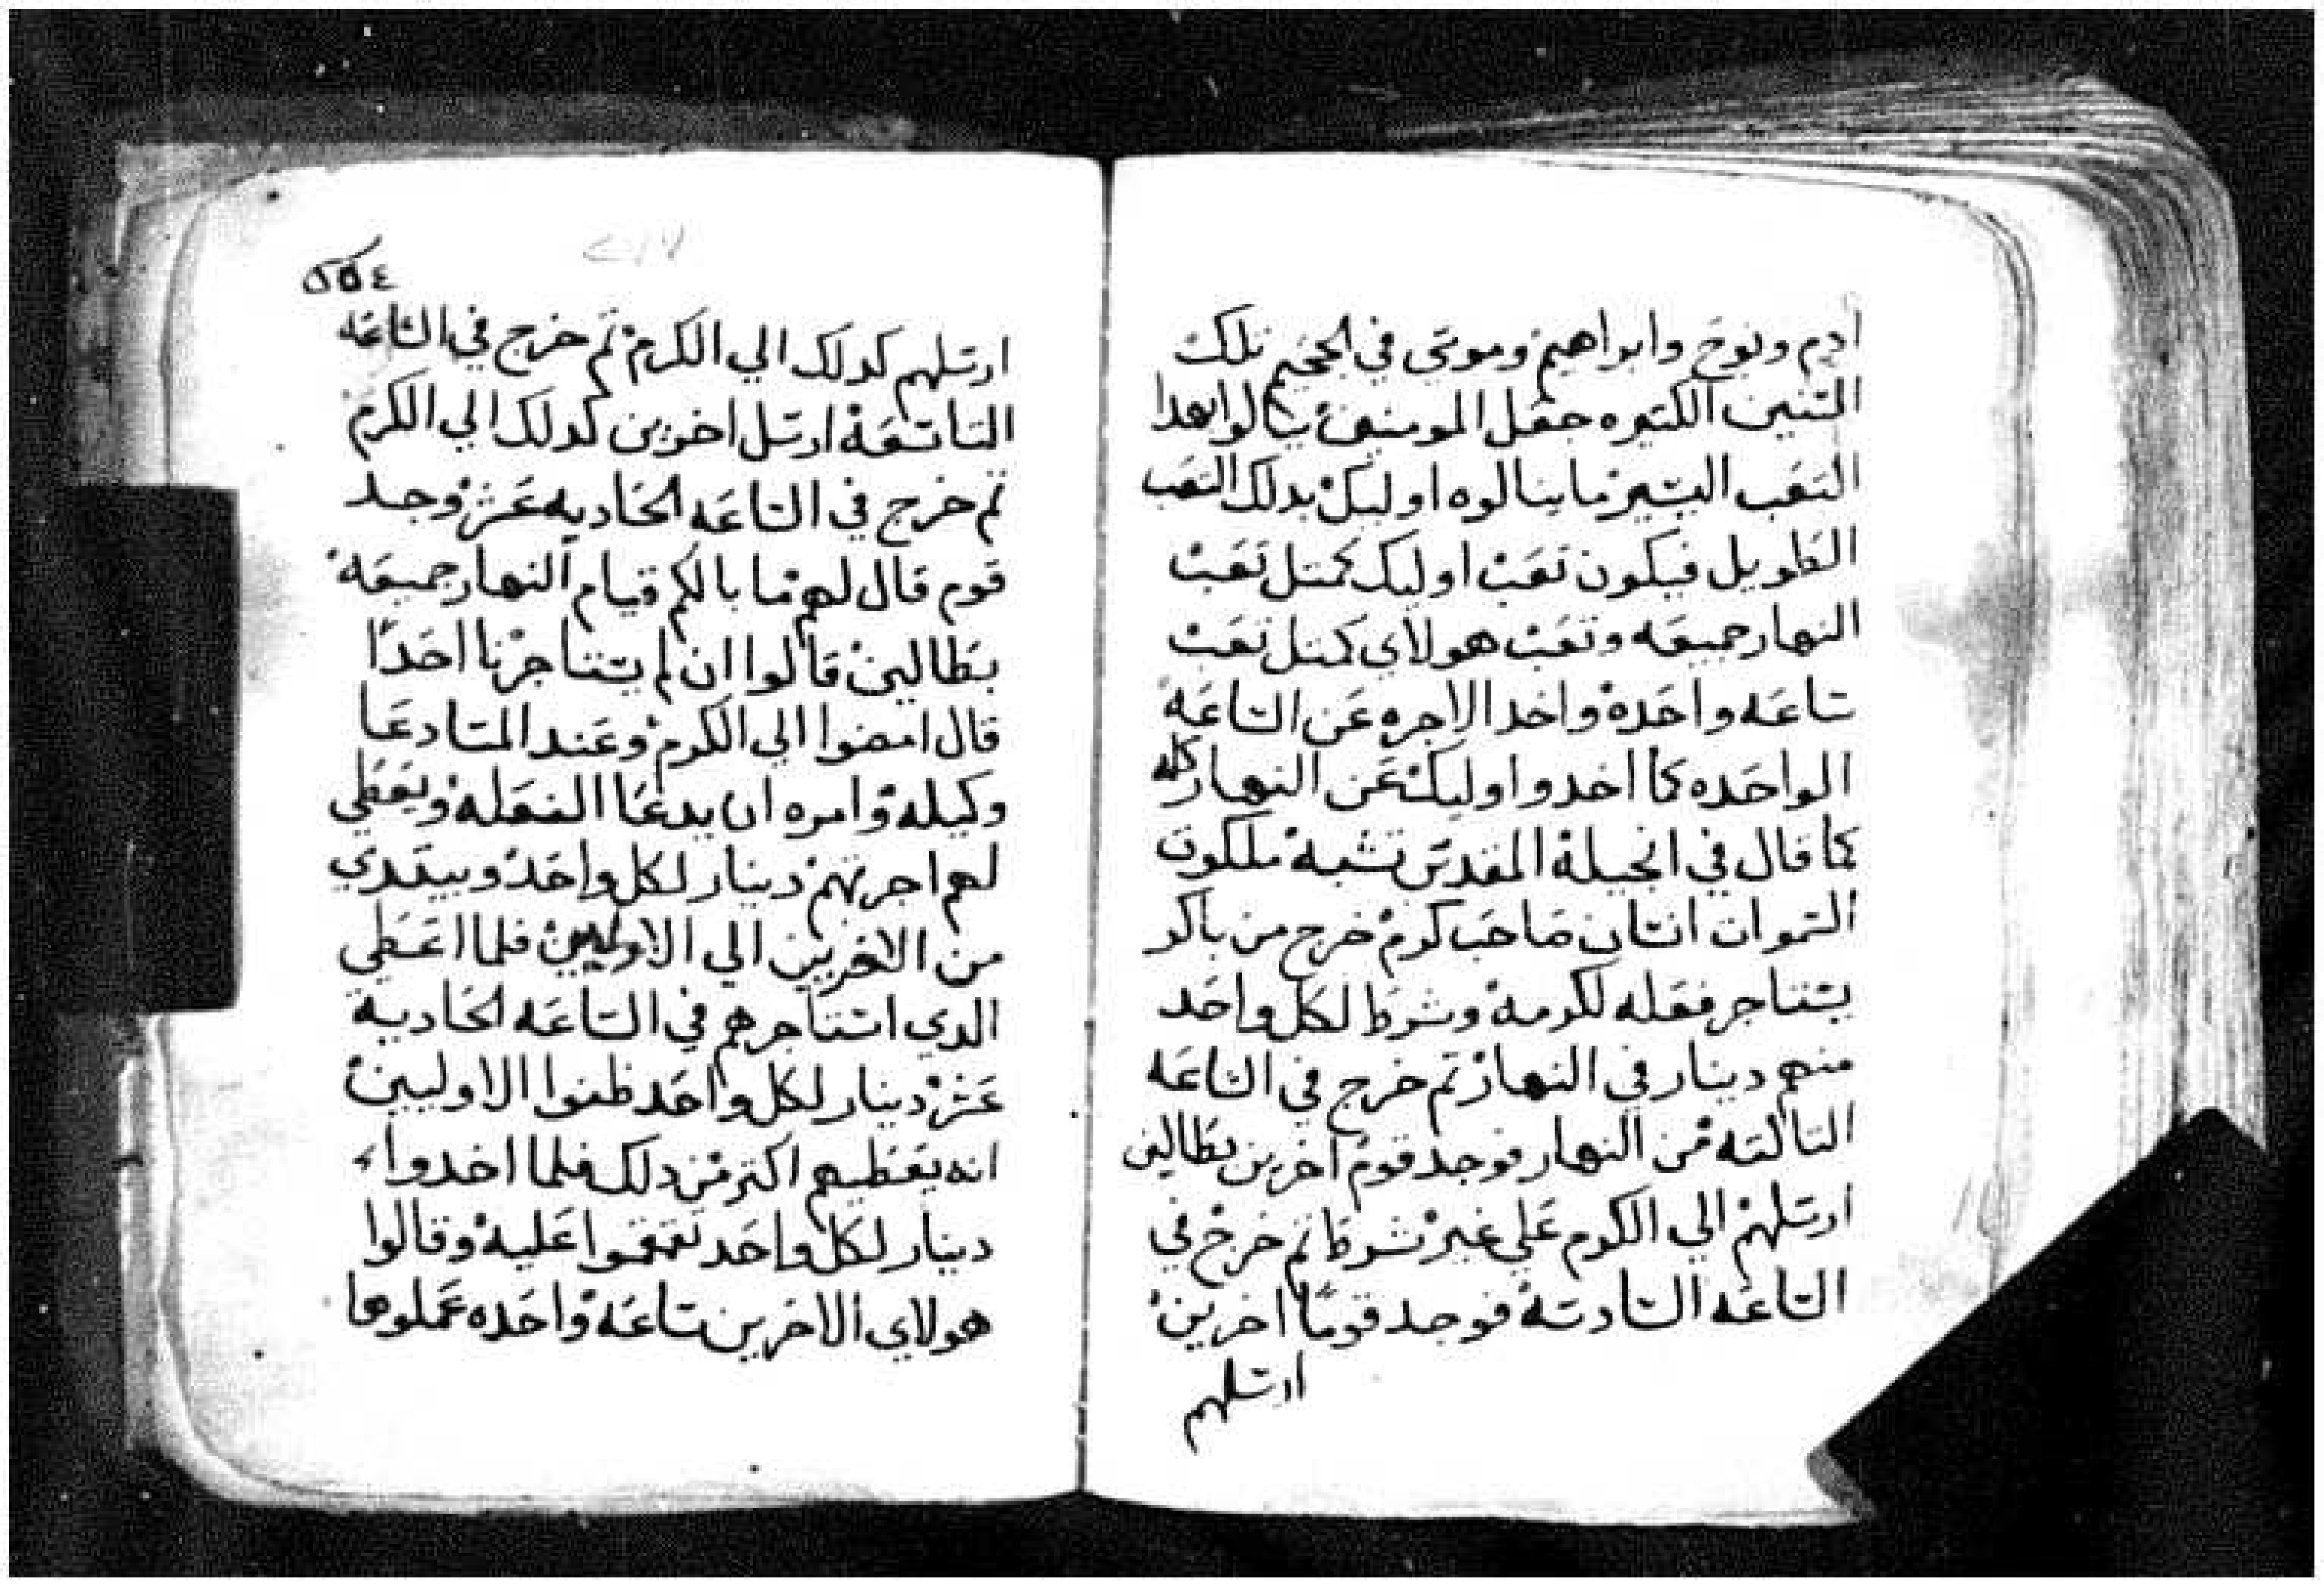 ادم ونوح وابراهيم وموسى في الجحيم تلك
السنين الكتيره جعل المومنين ينالوا بهدا
التعب اليسير ما ينالوه اوليك بدلك التعب
الطويل فيكون تعب اوليك كمتل تعب
النهار جميعه وتعب هولاي كمتل تعب
ساعه واحده واخد الاجره عن الساعه
الواحده كما اخدوا اوليك عن النهار كله
كما قال في انجيله المقدس تشبه ملكوت
السموات انسان صاحب كرم خرج من باكر
يستاجر فعله لكرمه وشرط لكل واحد
منهم دينار في النهار تم خرج في الساعه
التالته من النهار فوجد قوم اخرين بطالين
ارسلهم الي الكرم علي غير شرط تم خرج في
الساعه السادسه فوجد قومًا اخرين
ارسلهم
٥٥٤
ارسلهم كدلك الي الكرم تم خرج في الساعه
التاسعه ارسل اخرين كدلك الي الكرم
تم خرج في الساعه الحاديه عشر وجد
قوم قال لهم ما بالكم قيام النهار جميعه
بطالين قالوا ان لم يستاجرنا احدًا
قال امضوا الي الكرم وعند المسا دعا
وكيله وامره ان يدعا الفعله ويعطي
لهم اجرتهم دينار لكل واحد ويبتدي
من الاخرين الي الاوليين فلما اعطي
الدي استاجرهم في الساعه الحاديه
عشر دينار لكل واحد ظنوا الاوليين
انه يعطيهم اكتر من دلك فلما اخدوا
دينار لكل واحد تقمقموا عليه وقالوا
هولاي الاخرين ساعه واحده عملوها